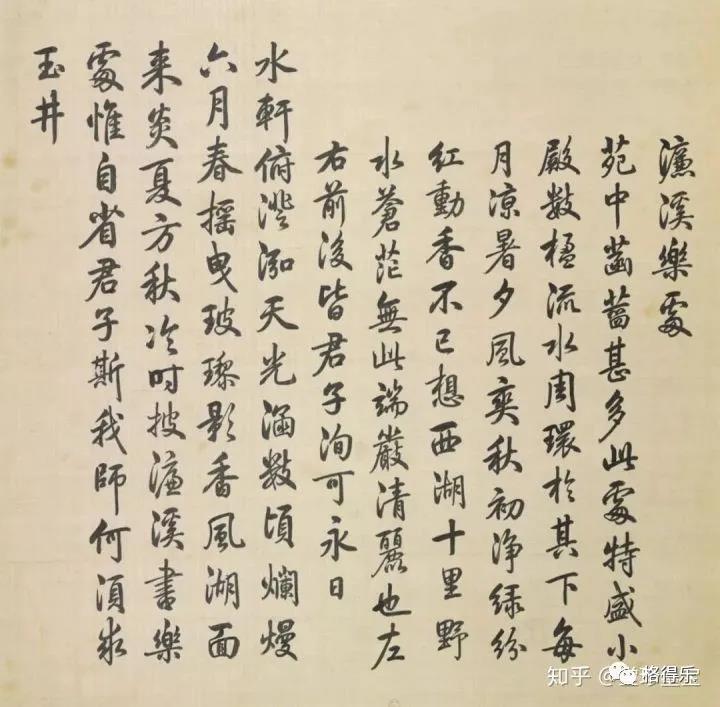 濂溪樂處
苑中菡萏甚多此處特盛小
殿数楹流水周環於其下每
月凉暑夕風爽秋初淨緑紛
紅動香不已想西湖十里野
水蒼茫無此端嚴清麗也左
右前後皆君子洵可永日
水軒俯澄泓天光涵数頃爛熳
六月春摇曳玻瓈影香風湖面
来炎夏方秋冷时披濂溪書樂
處惟自省君子斯我師何須求
玉井
知乎 @
格得乐